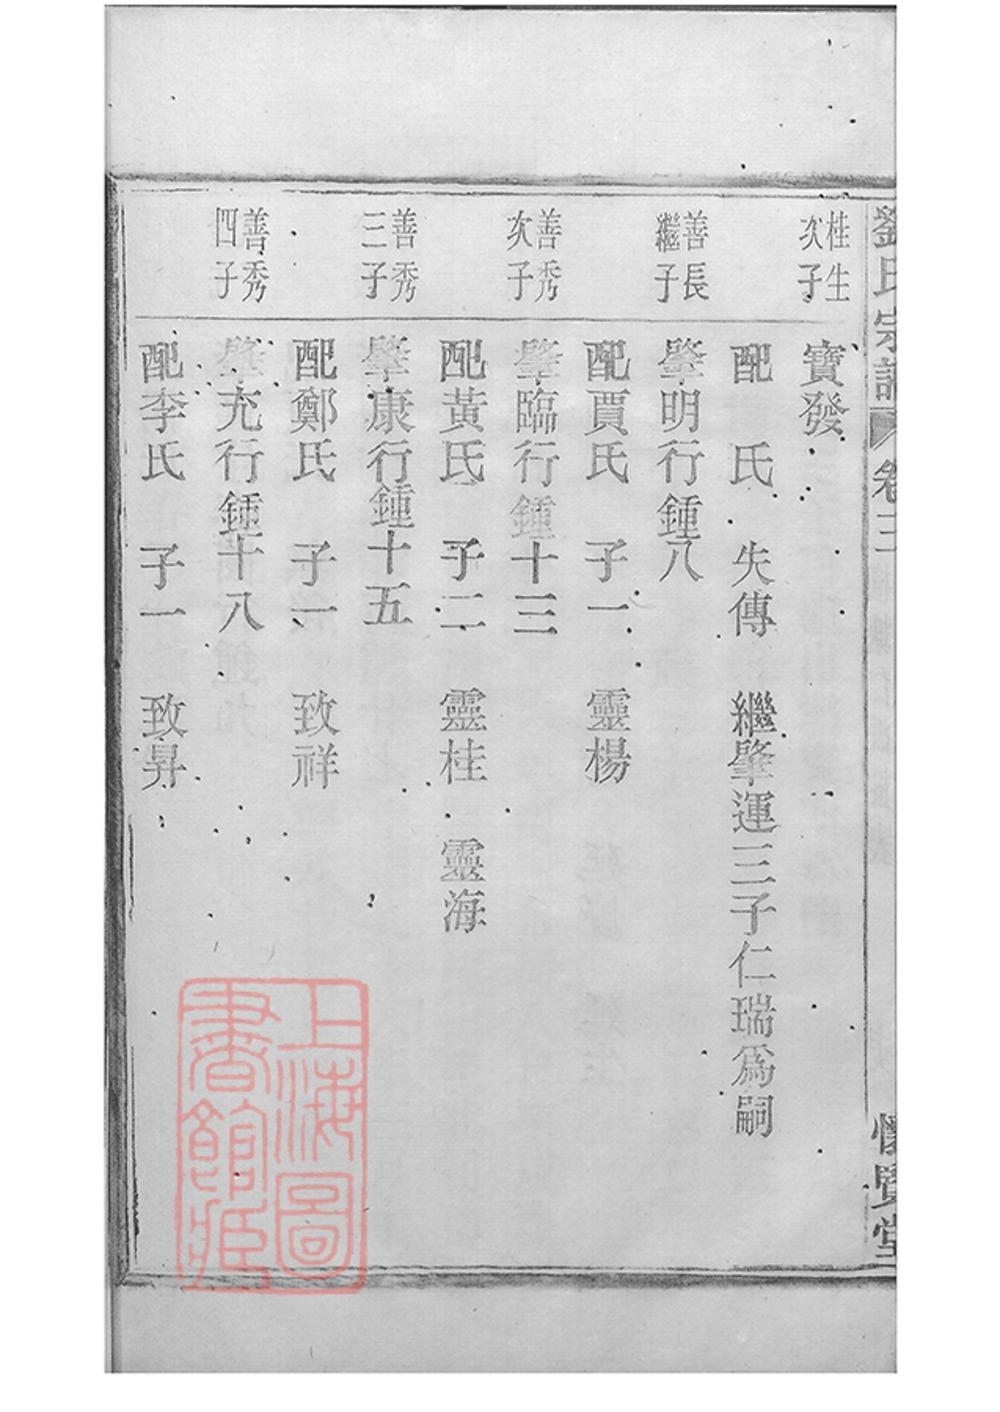 劉氏宗譜 卷三 懷賢堂
桂生次子
寶發
配 氏 失傳 繼肇運三子仁瑞爲嗣
善長繼子
肇明行鍾八
配賈氏 子一 靈楊
善秀次子
肇臨行鍾十三
配黃氏 子二 靈桂 靈海
善秀三子
肇康行鍾十五
配鄭氏 子一 致祥
善秀四子
肇充行鍾十八
配李氏 子一 致昇
上海圖書館藏